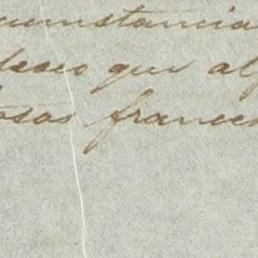 cumstancia
deseo que al
osas frances